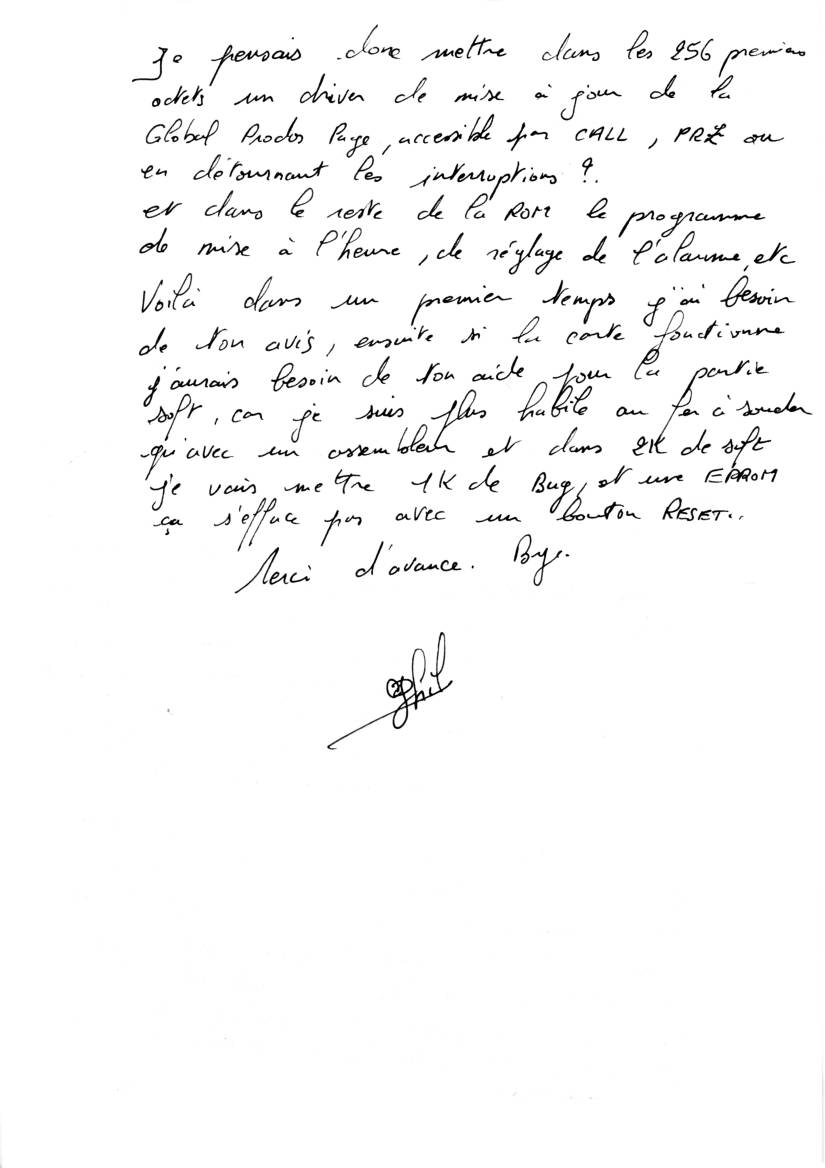 Je pensais donc mettre dans les 256 premiers
octets un driver de mise à jour de la
Global Prodos Page, accessible par CALL, PR£ ou
en détournant les interruptions ?.
et dans le reste de la ROM le programme
de mise à l'heure, de réglage de l'alarme, etc
Voilà dans un premier temps j'ai besoin
de ton avis, ensuite si la carte fonctionne
j'aurais besoin de ton aide pour la partie
soft, car je suis plus habile au fer à souder
qu'avec un assembleur et dans 2K de soft
je vais mettre 1K de Bug, et une EPROM
ça s'efface pas avec un bouton RESET..
Merci d'avance. Bye.
Phil